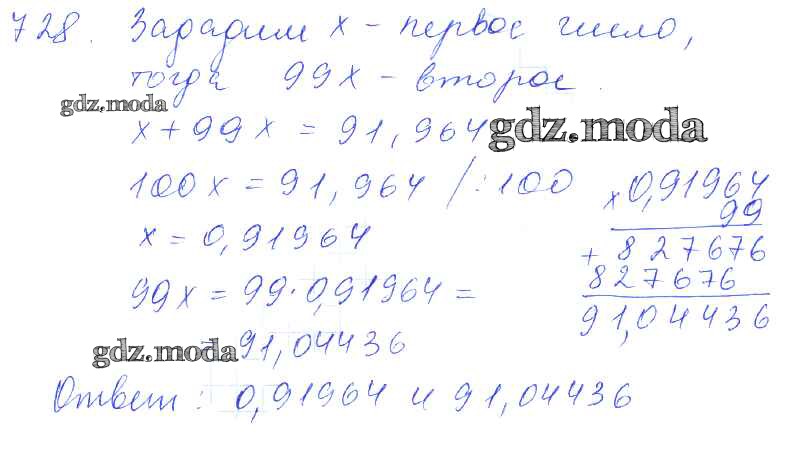 728. Зададим x - первое число,
тогда 99x - второе.
gdz.moda
x + 99x = 91,964
gdz.moda
100x = 91,964 /:100
x = 0,91964
99x = 99·0,91964 =
= 91,04436
gdz.moda
Ответ: 0,91964 и 91,04436
x 0,91964
99
+ 827676
827676
91,04436